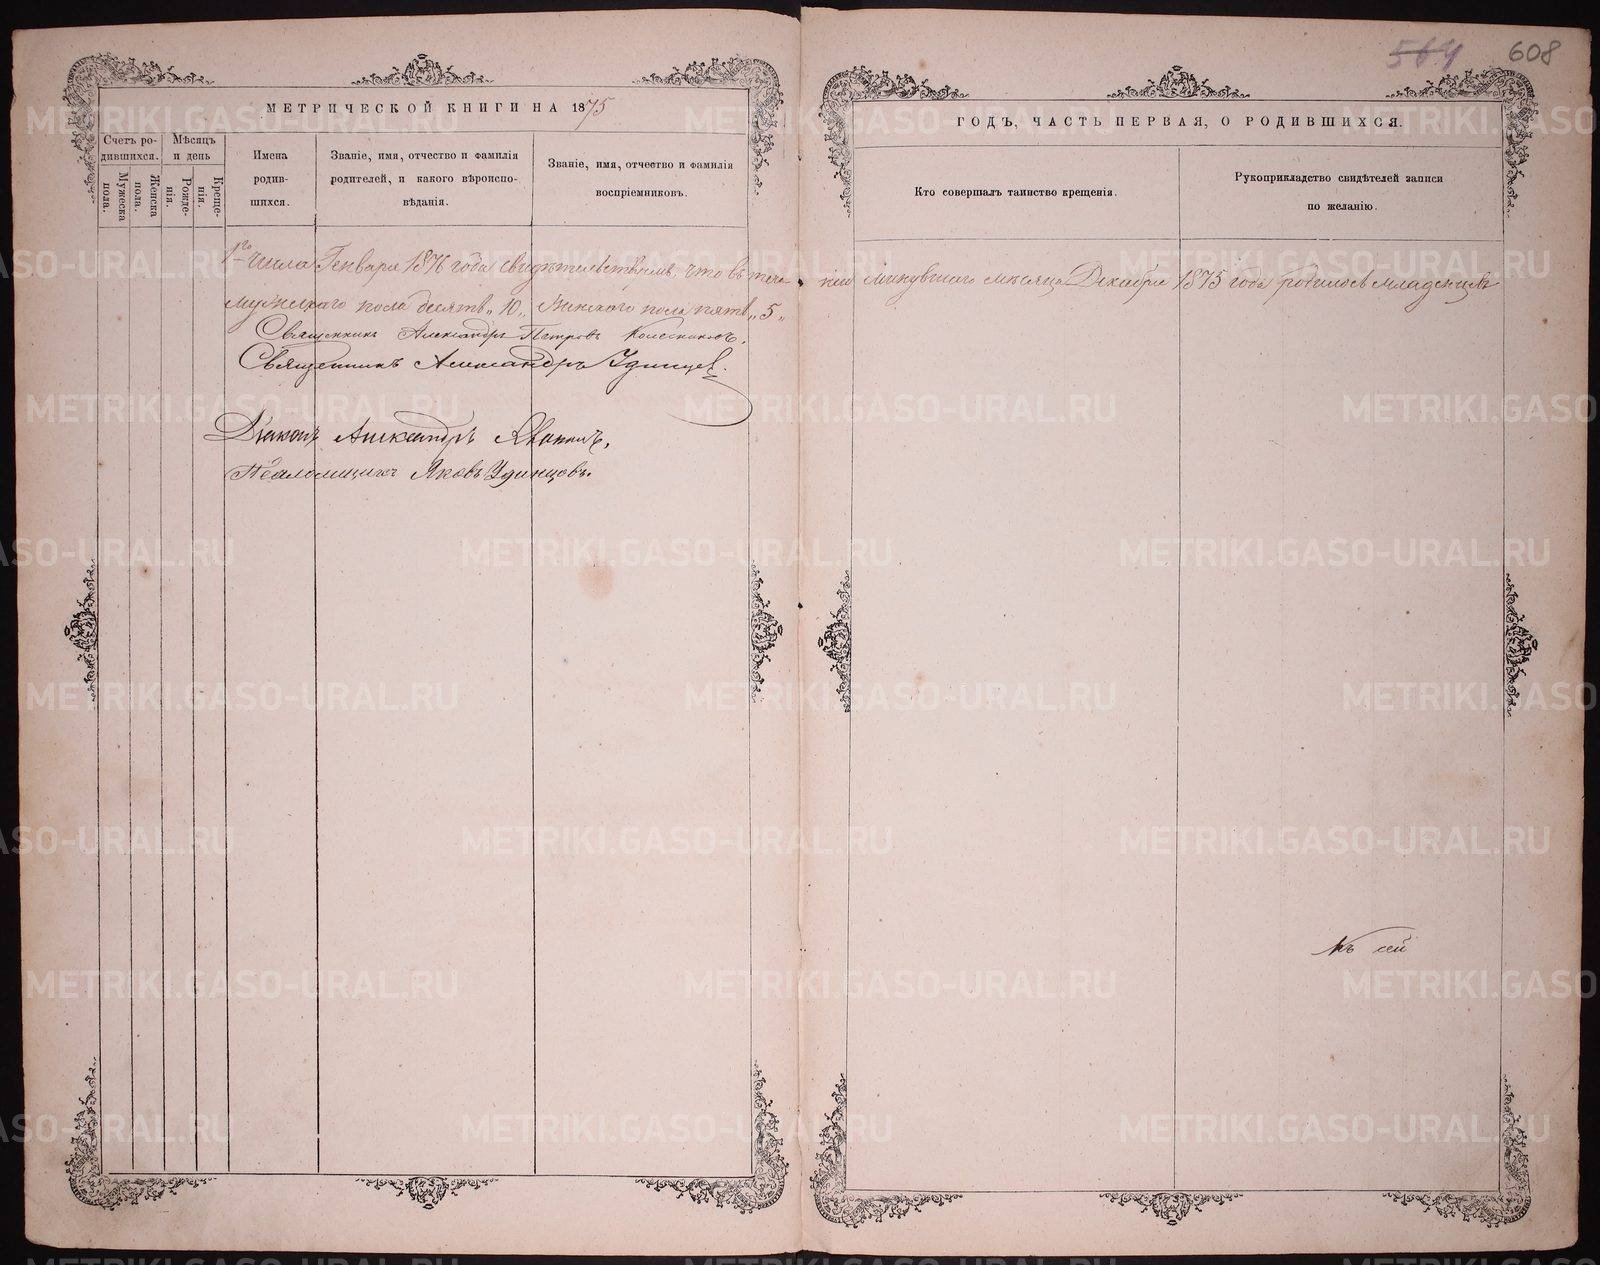 564 608
МЕТРИЧЕСКОЙ КНИГИ НА 1875
ГОДЪ, ЧАСТЬ ПЕРВАЯ, О РОДИВШИХСЯ.
Счетъ ро-
дившихся.
Мужеска
пола.
Женска
пола.
Мѣсяцъ
и день
Рожде-
нія.
Креще-
нія.
Имена
родив-
шихся.
Званіе, имя, отчество и фамилія
родителей, и какого вѣроиспо-
вѣданія.
Званіе, имя, отчество и фамилія
воспріемниковъ.
Кто совершалъ таинство крещенія.
Рукоприкладство свидѣтелей записи
по желанію.
1го числа Генваря 1876 года свидѣтельствуемъ, что въ тече-
ніи минувшаго мѣсяца Декабря 1875 года родилось младенцевъ
мужескаго пола десять „10„ женскаго пола пять „5„
Священникъ Александръ Петровъ
Священникъ Александръ Удинцев.
Діаконъ Александръ
Псаломщикъ Яковъ Удинцовъ.
Къ сей
METRIKI.GASO-URAL.RU